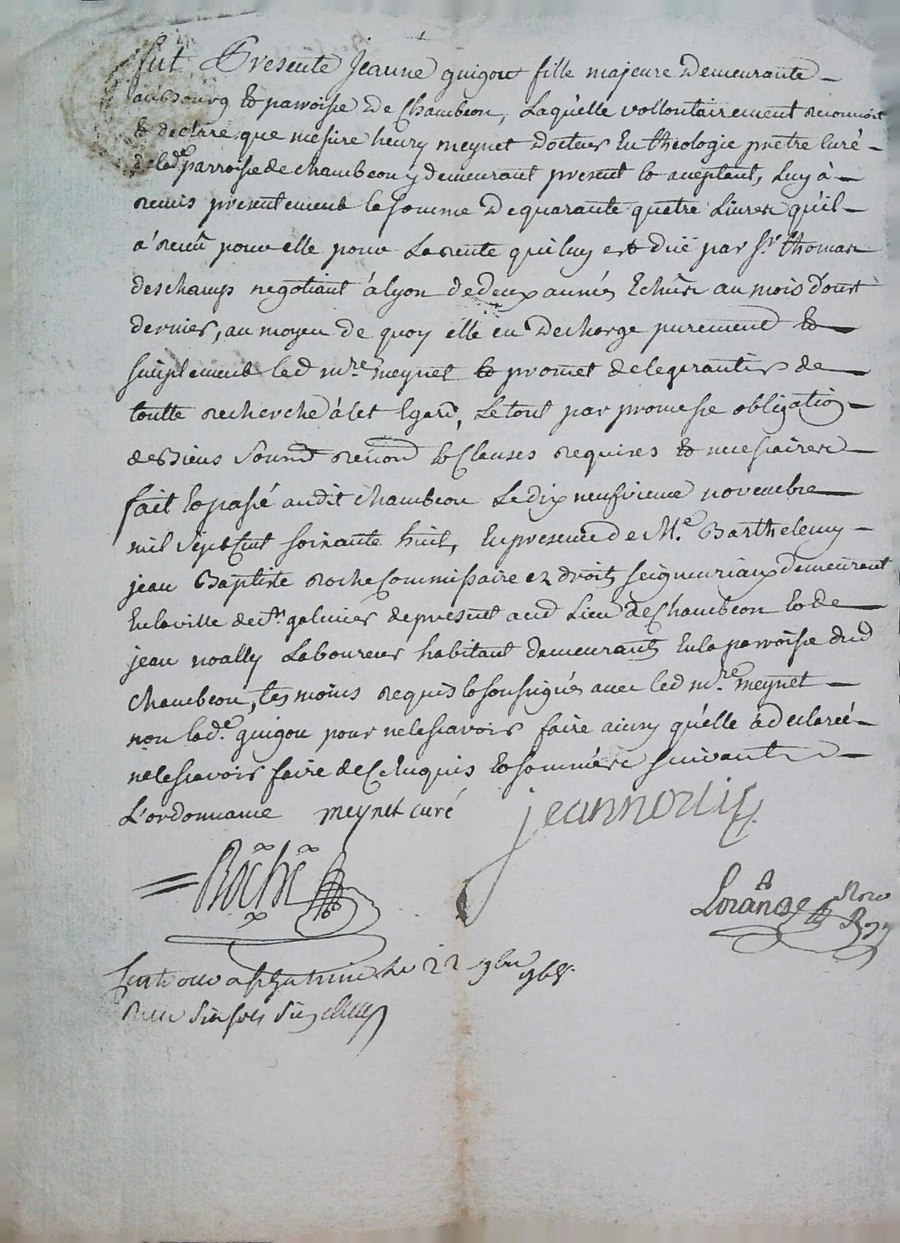 fut Presente jeanne guigou fille majeure Demeurante
au Bourg & paroisse De Chambeon, Laquelle vollontairement reconnoit
& declare que mesire henry meynet Docteur En theologie prêtre Curé
de lade parroisse de chambeon y demeurant present & aceptant, Luy à
remis presentement la somme De quarante quatre Livres qu'il
à reçeu pour elle pour La rente qui luy est düe par Sr. thomas
deschamps negotiant à lyon de deux années Echües au mois d'oust
dernier, au moyen de quoy elle en Decharge purement &
simplement led mre meynet & promet de le garantir de
toutte recherche à cet Egard, Le tout par promesse obligation
de Biens Soumd renond & Clauses requises & necessaires
fait & passé audit chambeon Le dix neufvieme novembre
mil sept cent soixante huit, En presence de Me. Barthelemy
jean Baptiste roche Commissaire ez droits seigneuriaux demeurant
En la ville de st galmier de present aud Lieu de Chambeon & de
jean noally Laboureur habitant demeurant En la paroisse dud
Chambeon, temoins requis & sousignés avec led mre meynet
non lade. guigou pour ne le scavoir faire ainsy qu'elle à declarée
ne le scavoir faire de Ce Enquis & sommée suivant
L'ordonnance meynet curé
jean noally
Roche
Lorange Nore
Roy
le 22 9bre 1768.
Reçu six sols six